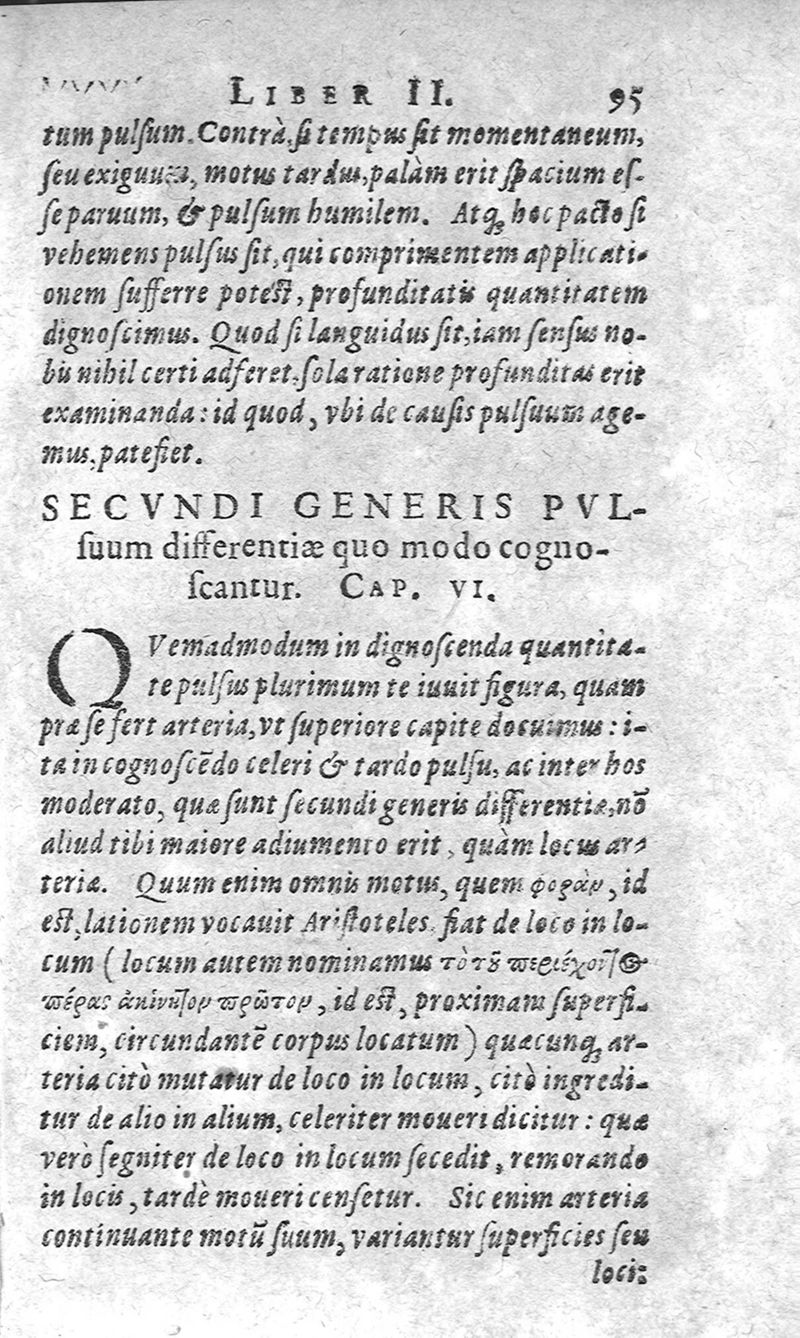 LIBER II. 95
tum pulſum. Contrà, ſi tempus ſit momentaneum,
ſeu exiguum, motus tardus, palàm erit ſpacium eſ-
ſe paruum, & pulſum humilem. Atq; hoc pacto ſi
vehemens pulſus ſit, qui comprimentem applicati-
onem ſufferre poteſt, profunditatis quantitatem
dignoſcimus. Quod ſi languidus ſit, iam ſenſus no-
bis nihil certi adferet, ſola ratione profunditas erit
examinanda: id quod, vbi de cauſis pulſuum age-
mus, patefiet.
SECVNDI GENERIS PVL-
ſuum differentiæ quo modo cogno-
ſcantur. CAP. VI.
QVemadmodum in dignoſcenda quantita-
te pulſus plurimum te iuuit figura, quam
præ ſe fert arteria, vt ſuperiore capite docuimus: i-
ta in cognoſcẽdo celeri & tardo pulſu, ac inter hos
moderato, quæ ſunt ſecundi generis differentiæ, nõ
aliud tibi maiore adiumento erit, quàm locus ar-
teriæ. Quum enim omnis motus, quem φορὰν, id
eſt, lationem vocauit Ariſtoteles, fiat de loco in lo-
cum (locum autem nominamus τὸ τοῦ περιέχοντος
πέρας ἀκίνητον πρῶτον, id eſt, proximam ſuperfi-
ciem, circundantẽ corpus locatum) quæcunq; ar-
teria citò mutatur de loco in locum, citò ingredi-
tur de alio in alium, celeriter moueri dicitur: quæ
verò ſegniter de loco in locum ſecedit, remorando
in locis, tardè moueri cenſetur. Sic enim arteria
continuante motũ ſuum, variantur ſuperficies ſeu
loci: